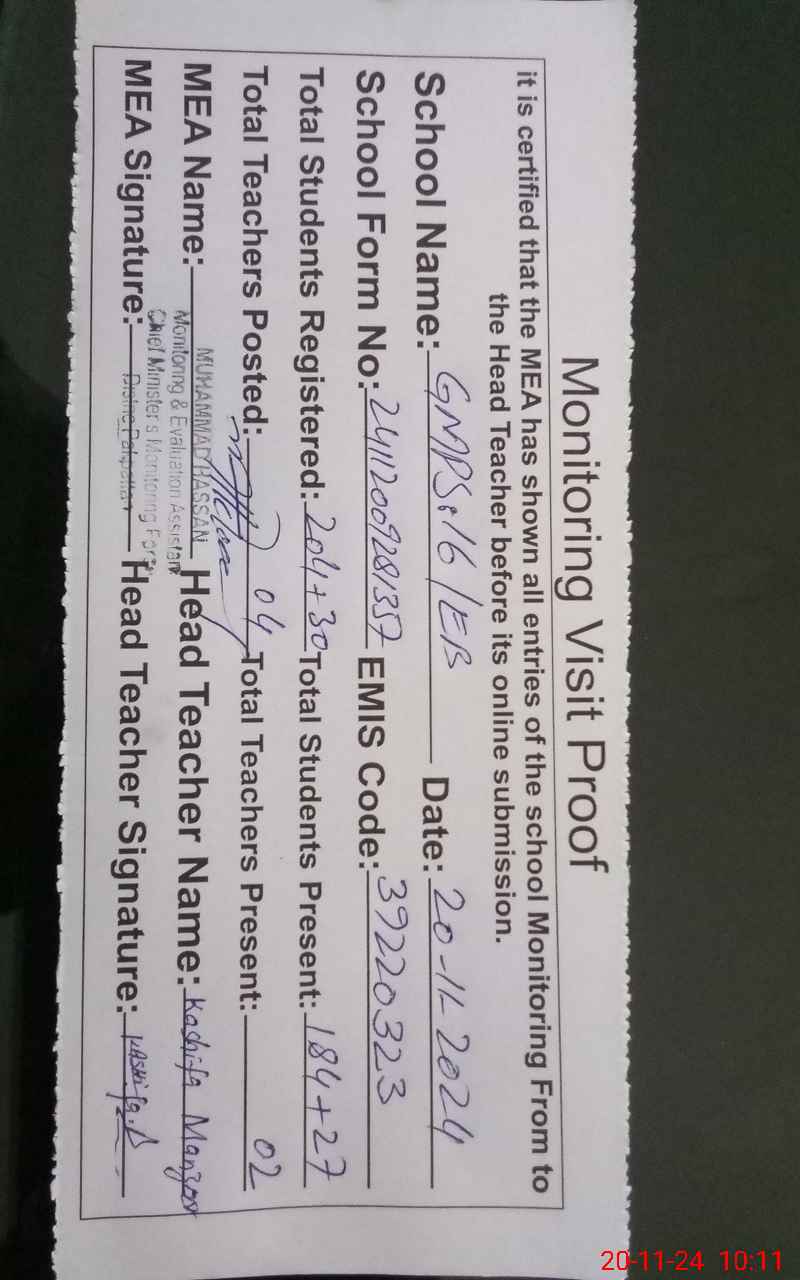 Monitoring Visit Proof
it is certified that the MEA has shown all entries of the school Monitoring From to
the Head Teacher before its online submission.
School Name: GMPS:16/EB Date: 20-11-2024
School Form No: 24112009281357 EMIS Code: 39220323
Total Students Registered: 204+30 Total Students Present: 184+27
Total Teachers Posted: 04 Total Teachers Present: 02
MEA Name: MUHAMMAD HASSAN Head Teacher Name: Kashifa Manzoor
Monitoring & Evaluation Assistant
Chief Minister's Monitoring Force
MEA Signature: Pakpattan Head Teacher Signature: Kashifa
20-11-24 10:11